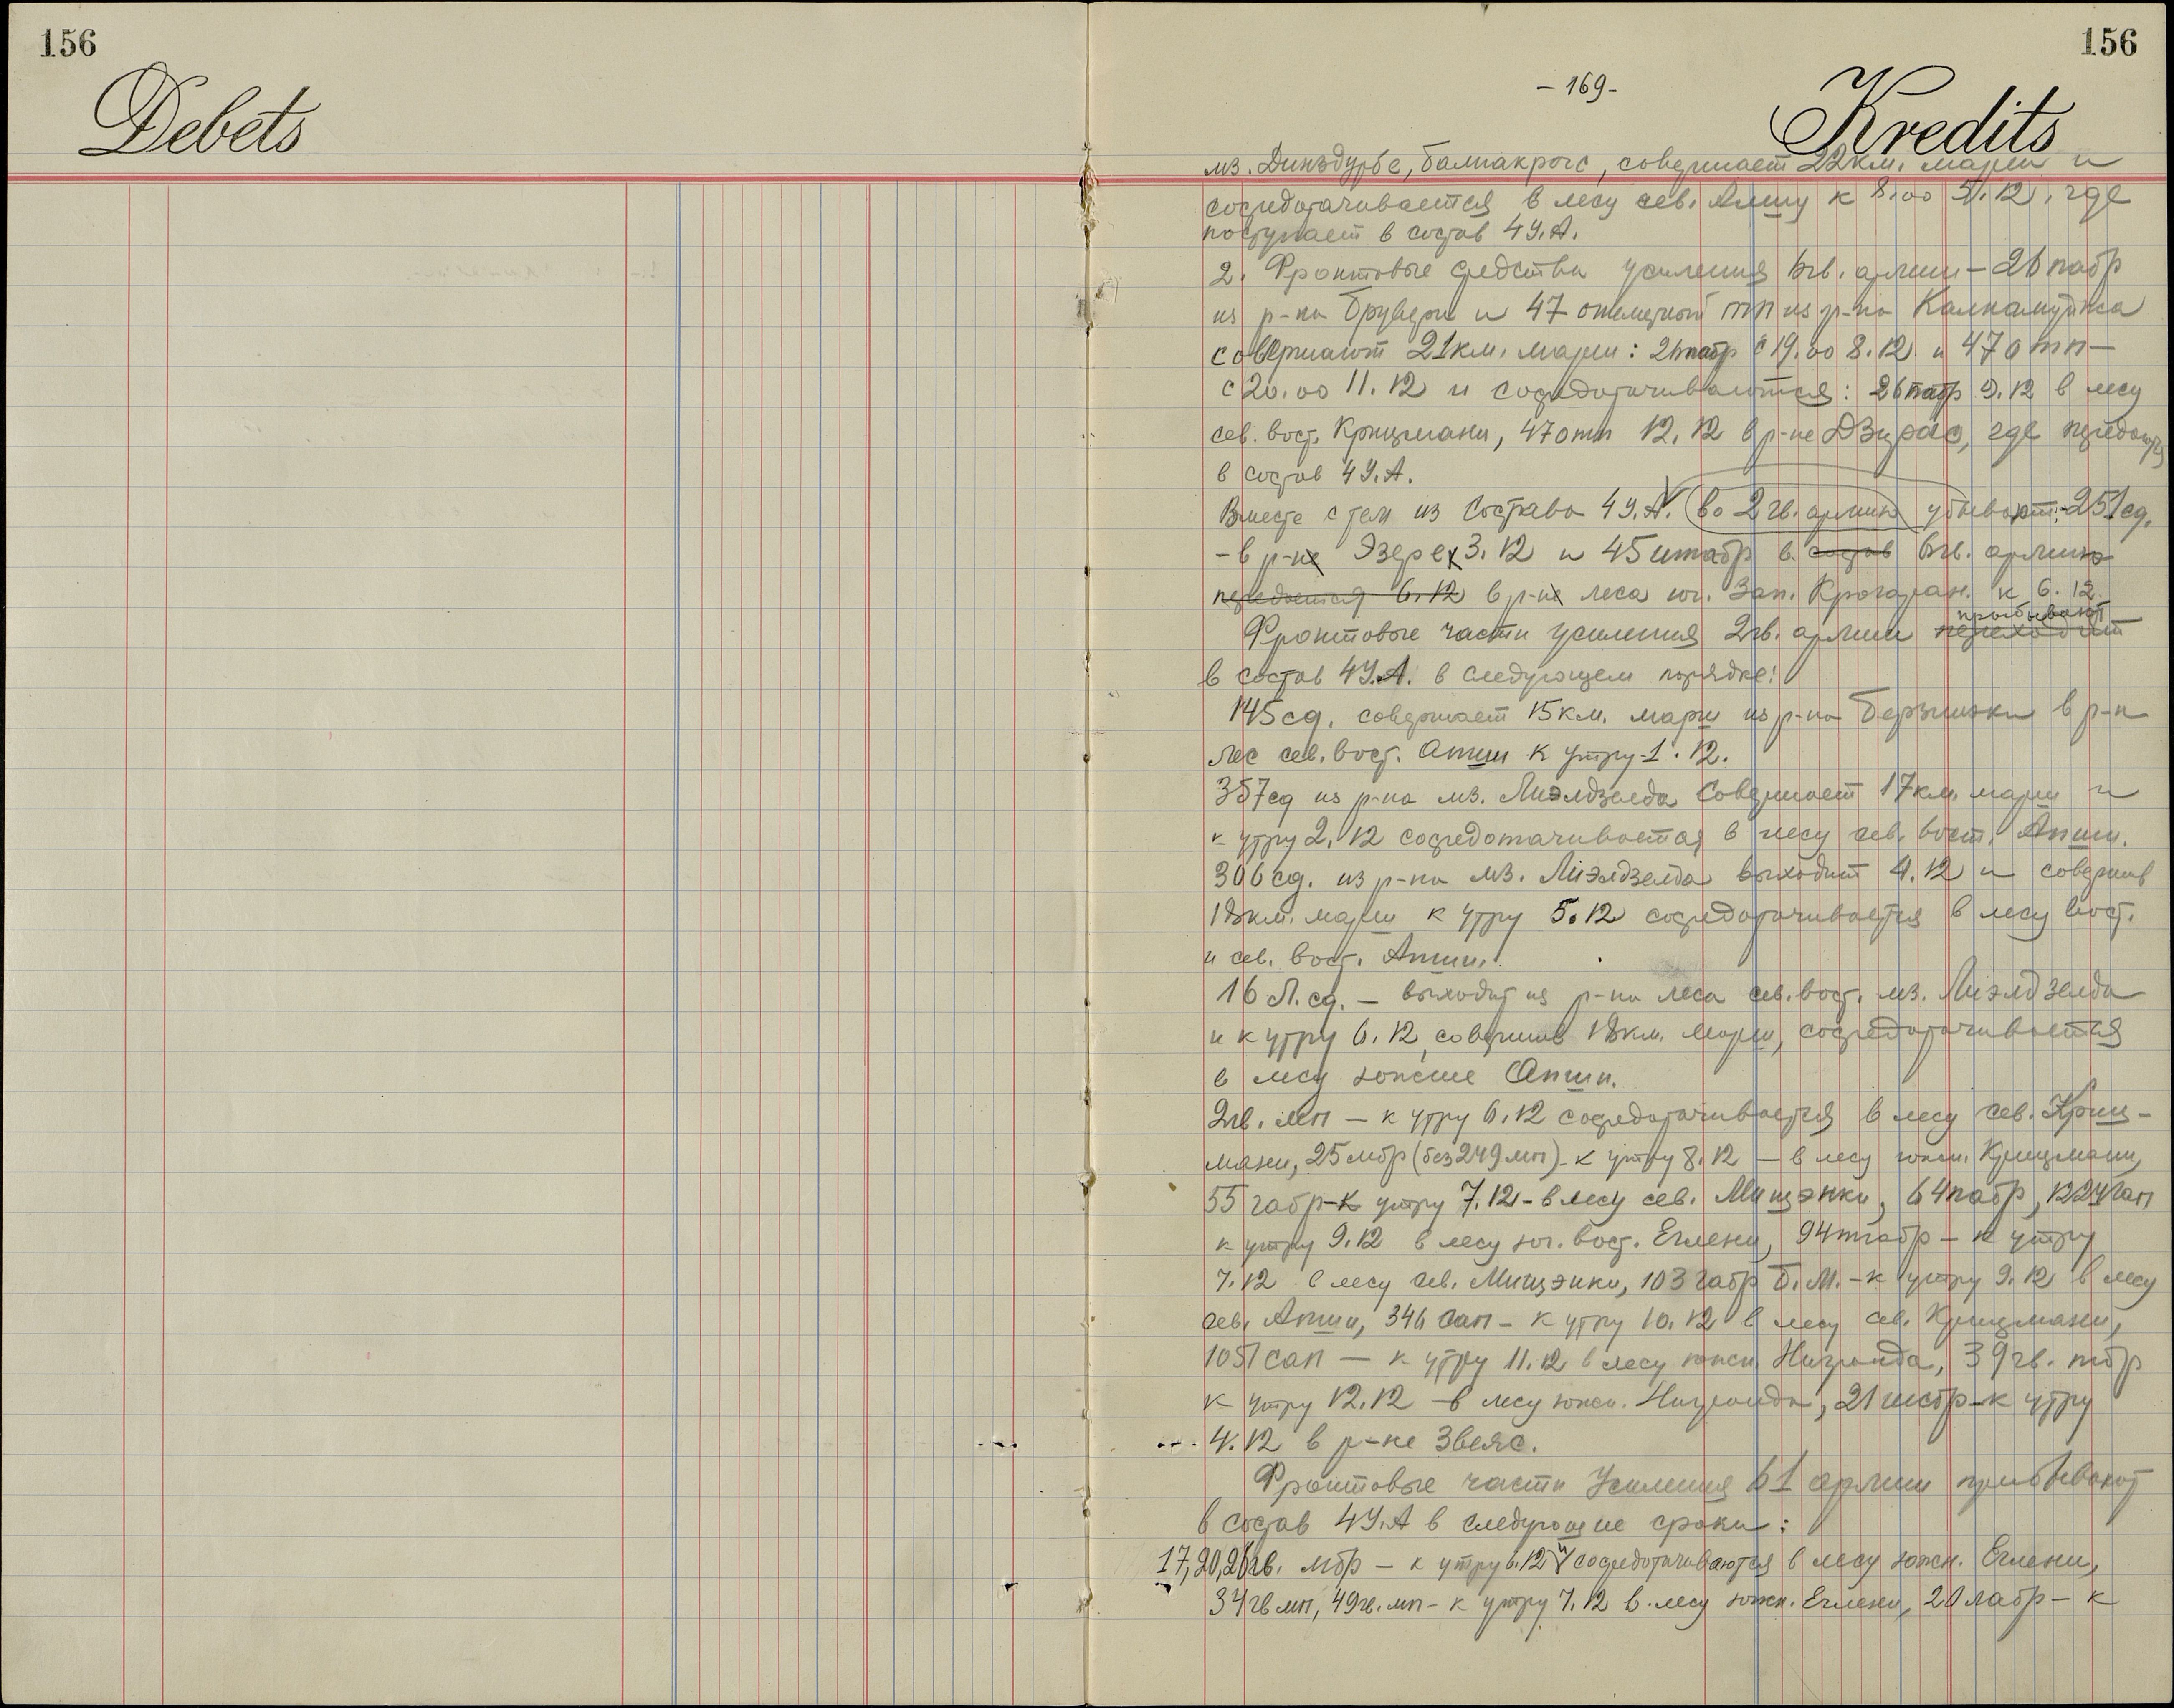 156
Debets
156
Kredits
- 169 -
мз. Динздурбе, балтакрогс, совершает 22 км. марш и
сосредотачивается в лесу сев. Апши к 8.00 5.12, где
поступает в состав 4 У.А.
2. Фронтовые средства усиления 6гв. армии - 26 пабр
из р-на Брувери и 47 огнеметный тп из р-на Калнамуйжа
совершают 21 км. марш: 26 пабр с 19.00 8.12 и 47 отп -
с 20.00 11.12 и сосредотачиваются: 26 пабр 9.12 в лесу
сев. вост. Крицмани, 47 отп 12.12 в р-не Дзирас, где передаются
в состав 4 У.А.
Вместе с тем из состава 4 У.А. во 2 гв. армию убывают: - 251 сд.
- в р-не Эзере 3.12 и 45 итабр в состав 6гв. армию
передается 6.12 в р-не леса юг. зап. к 6.12.
прибывают
Фронтовые части усиления 2гв. армии переходят
в состав 4 У.А. в следующем порядке:
145 сд. совершает 15 км. марш из р-на Берзниэки в р-н
лес сев. вост. Апши к утру 1.12.
357 сд из р-на мз. Лиэлдзелда совершает 17 км. марш и
к утру 2.12 сосредотачивается в лесу сев. вост. Апши.
306 сд. из р-на мз. Лиэлдзелда выходит 4.12 и совершив
18 км. марш к утру 5.12 сосредотачивается в лесу вост.
и сев. вост. Апши.
16 Л. сд. - выходит из р-на леса сев. вост. мз. Лиэлдзелда
и к утру 6.12, совершив 18 км. марш, сосредотачивается
в лесу южнее Апши.
2гв. мп - к утру 6.12 сосредотачивается в лесу сев. Криц-
мани, 25 мбр (без 249 мп) - к утру 8.12 - в лесу южн. Крицмани,
55 габр - к утру 7.12 - в лесу сев. Мицэнки, 64 пабр, 1224 гап
к утру 9.12 в лесу юг. вост. Еглени, 94 тгабр - к утру
7.12 в лесу сев. Мицэнки, 103 габр Б.М. - к утру 9.12 в лесу
сев. Апши, 346 сап - к утру 10.12 в лесу сев. Крицмани,
1051 сап - к утру 11.12 в лесу южн. Нигранда, 39 гв. тбр
к утру 12.12 - в лесу южн. Нигранда, 21 шсбр - к утру
4.12 в р-не Звеяс.
Фронтовые части усиления 61 армии прибывают
в состав 4 У.А в следующие сроки:
17, 20, 26гв. мбр - к утру 6.12 и сосредотачиваются в лесу южн. Еглени,
34 гв мп, 49гв. мп - к утру 7.12 в лесу южн. Еглени, 20 лабр - к